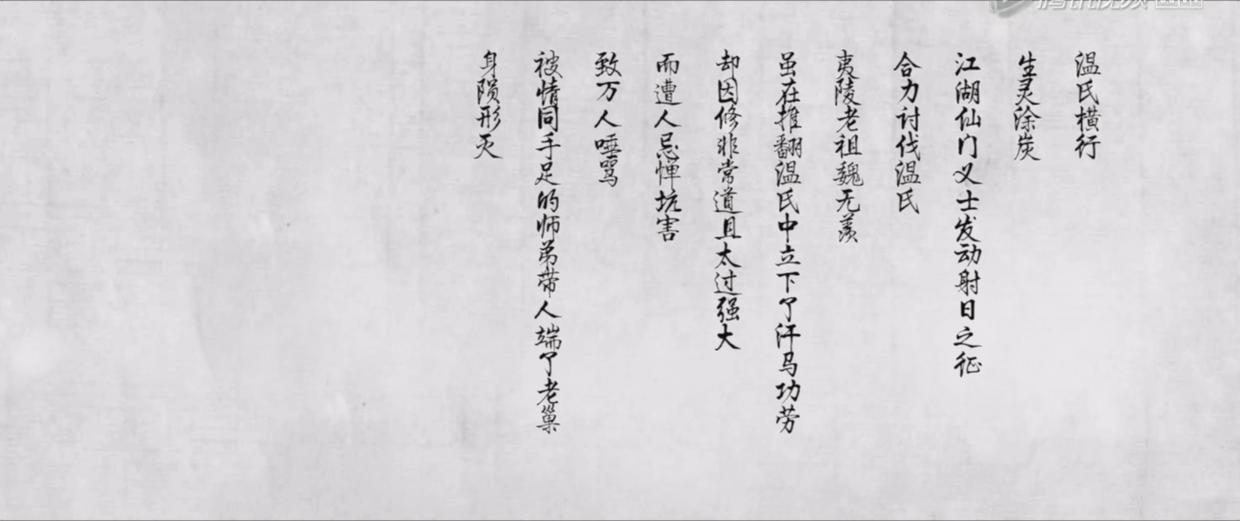 温氏横行
生灵涂炭
江湖仙门义士发动射日之征
合力讨伐温氏
夷陵老祖魏无羡
虽在推翻温氏中立下了汗马功劳
却因修非常道且太过强大
而遭人忌惮坑害
致万人唾骂
被情同手足的师弟带人端了老巢
身陨形灭